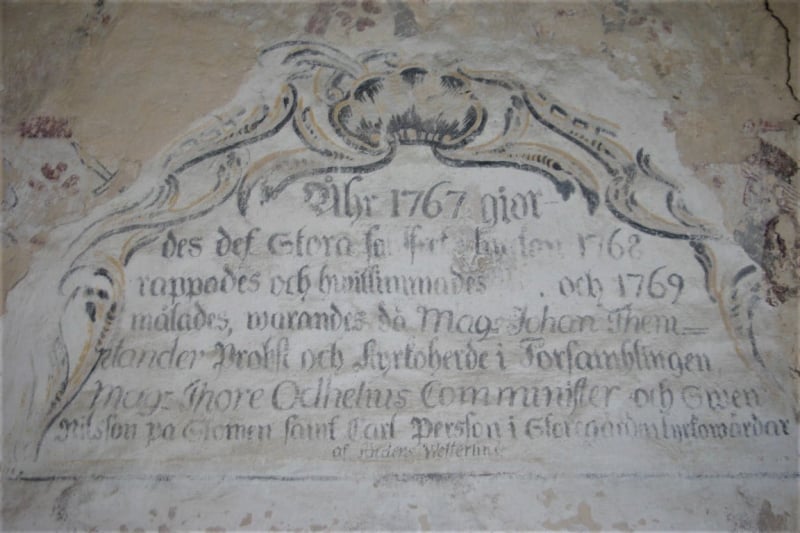 Åhr 1767 gior-
des det Stora 1768
rappades och hwitlimmades och 1769
målades, warandes då Mag: Johan Them=
elander Probst och Kyrkoherde i Forsamblingen
Mag: Thore Odhelius Comminister och Swen
Nilsson på Stomen samt Carl Persson i Storegården kyrkowärdar
af Anders Wetterling